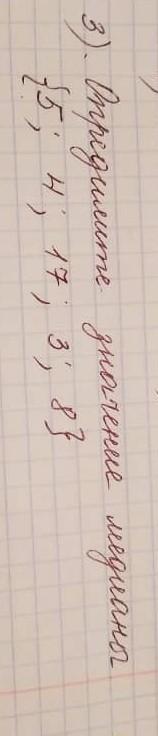 3). Определите значение медианы
{5; 4; 17; 3; 8}